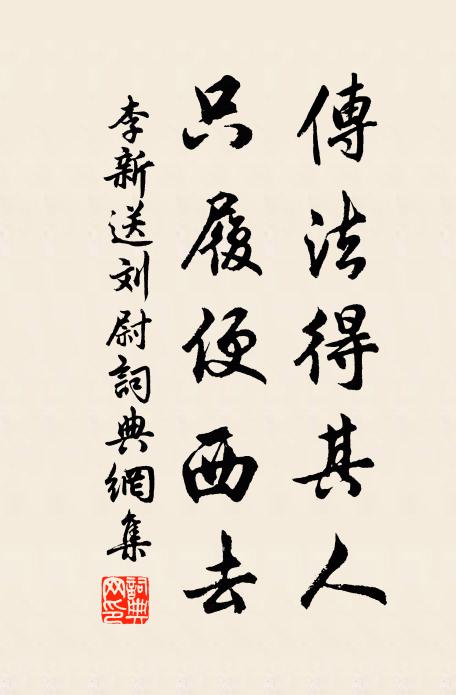 傳法得其人
只履便西去
李新送刘尉詞典網集
詞典网印